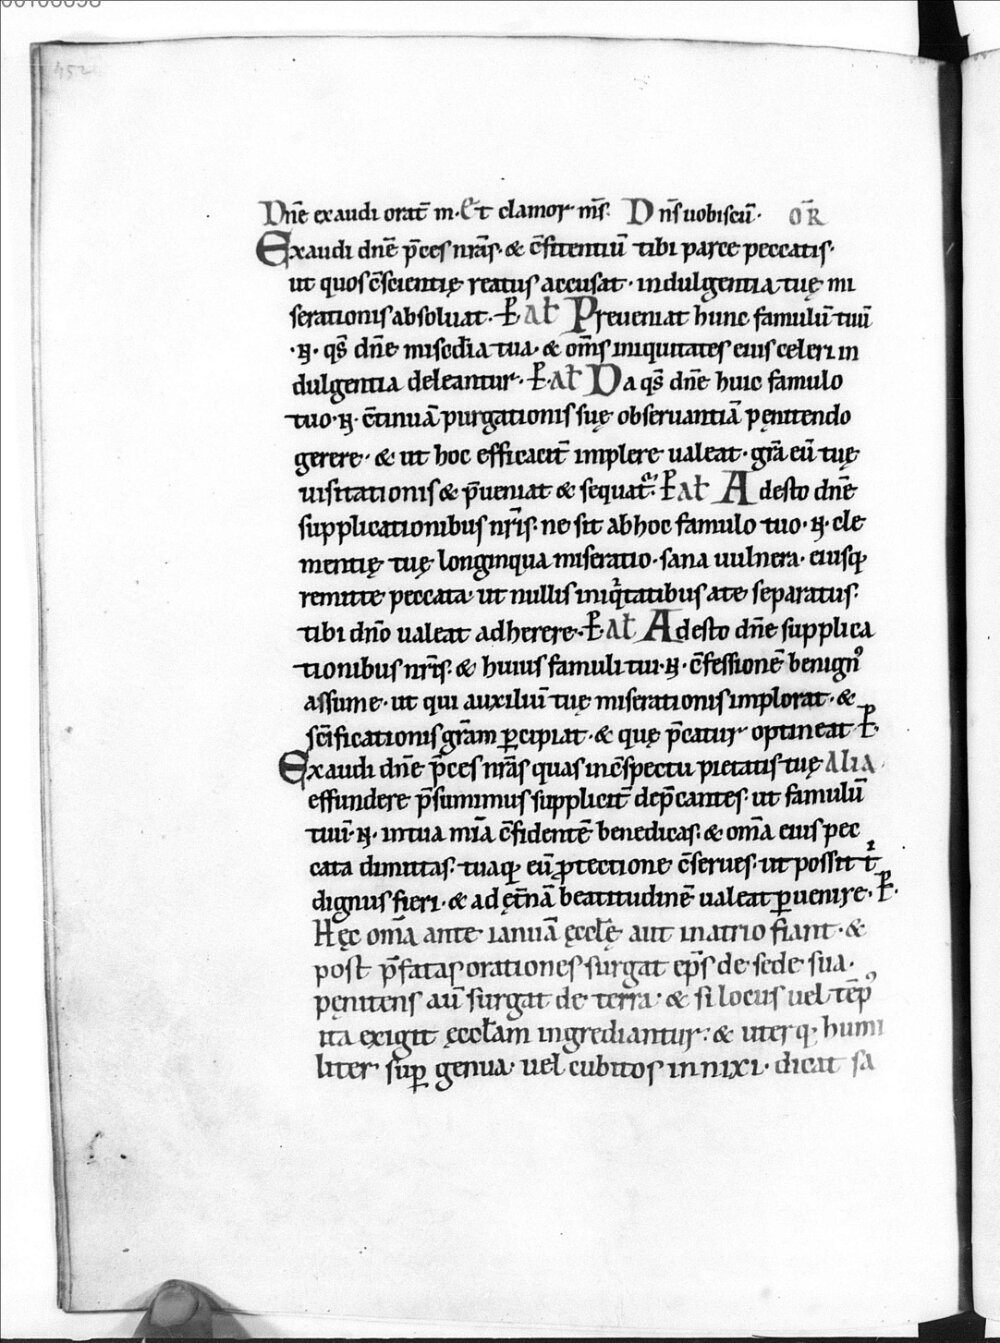 452
Dnē exaudi orat̄ m. Et clamor m̄s. Dn̄s uobiscū. OR̄
Exaudi dnē p̄ces nrās. & c̄fitentiū tibi parce peccatis.
ut quos c̄scientię reatus accusat. indulgentia tuę mi
serationis absoluat. P̄. Al̄ Preueniat hunc famulū tuū
.N. qs̄ dnē misc̄dia tua. & om̄s iniquitates eius celeri in
dulgentia deleantur. P̄. Al̄ Da qs̄ dnē huic famulo
tuo .N. c̄tinuā purgationis suę obseruantiā pęnitendo
gerere. & ut hoc efficacit̄ implere ualeat. gr̄a eū tuę
uisitationis & p̄ueniat & sequat᷑. P̄ Al̄ Adesto dnē
supplicationibus nr̄is. ne sit ab hoc famulo tuo .N. cle
mentię tuę longinqua miseratio. sana uulnera. eiusq;
remitte peccata. ut nullis iniqͥtatibus a te separatus.
tibi dnō ualeat adherere. P̄. Al̄ Adesto dnē supplica
tionibus nr̄is. & huius famuli tui .N. c̄fessionē benignꝰ
assume. ut qui auxiliū tuę miserationis implorat. &
sc̄ificationis gr̄am ꝑcipiat. & quę p̄catur optineat. P̄.
Exaudi dnē p̄ces nrās quas in c̄spectu pietatis tuę Alia.
effundere p̄sumimus supplicit̄ dep̄cantes. ut famulū
tuū .N. in tua mīa c̄fidentē benedicas. & om̄a eius pec
cata dimittas. tuaq; eū ꝓtectione c̄serues. ut possit tͥ
dignus fieri. & ad ęt̄nā beatitudinē ualeat ꝑuenire. P̄.
Hęc om̄a ante ianuā ęccl̄ę aut in atrio fiant. &
post p̄fatas orationes surgat ep̄s de sede sua.
pęnitens aū surgat de terra. & si locus uel tēpꝰ
ita exigit ęccl̄am ingrediantur. & uterq; humi
liter suꝑ genua. uel cubitos innixi. dicat sa